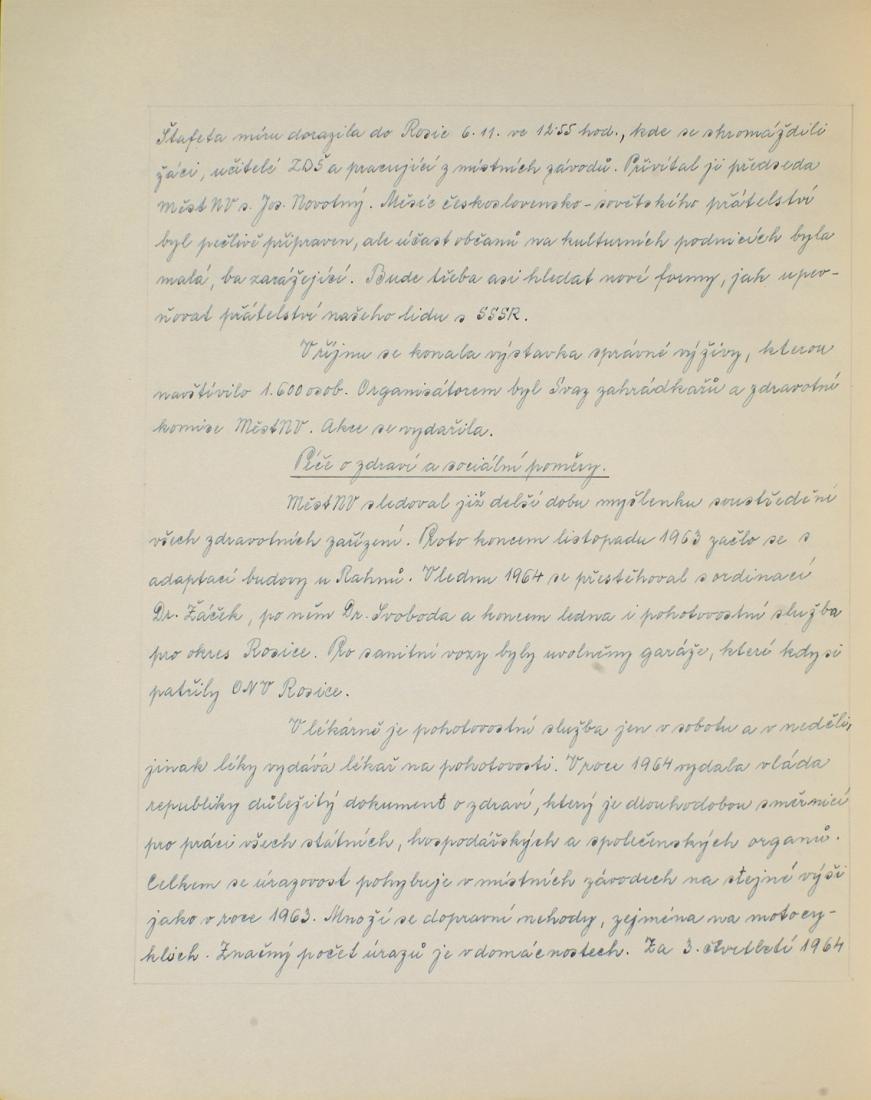 Štafeta míru dorazila do Rosic 6.11. ve 12.55 hod., kde se shromáždili
žáci, učitelé ZDŠ a pracující z místních závodů. Přivítal ji předseda
MěstNV s. Jos. Novotný. Měsíc československo-sovětského přátelství
byl pečlivě připraven, ale účast občanů na kulturních podnicích byla
malá, ba zarážející. Bude třeba asi hledat nové formy, jak upev-
ňovat přátelství našeho lidu s SSSR.
V říjnu se konala výstavka správné výživy, kterou
navštívilo 1.600 osob. Organisátorem byl Svaz zahrádkářů a zdravotní
komise MěstNV. Akce se vydařila.
Péče o zdraví a sociální poměry.
MěstNV sledoval již delší dobu myšlenku soustředění
všech zdravotních zařízení. Proto koncem listopadu 1963 začlo se s
adaptací budovy u Rahnů. V lednu 1964 se přestěhoval s ordinací
Dr. Žáček, po něm Dr. Svoboda a koncem ledna i pohotovostní služba
pro okres Rosice. Pro sanitní vozy byly uvolněny garáže, které kdysi
patřily ONV Rosice.
V lékárně je pohotovostní služba jen v sobotu a v neděli,
jinak léky vydává lékař na pohotovosti. V roce 1964 vydala vláda
republiky důležitý dokument o zdraví, který je dlouhodobou směrnicí
pro práci všech státních, hospodářských a společenských organů.
Celkem se úrazovost pohybuje v místních závodech na stejné výši
jako v roce 1963. Množí se dopravní nehody, zejména na motocy-
klech. Značný počet úrazů je v domácnostech. Za 3. čtvrtletí 1964